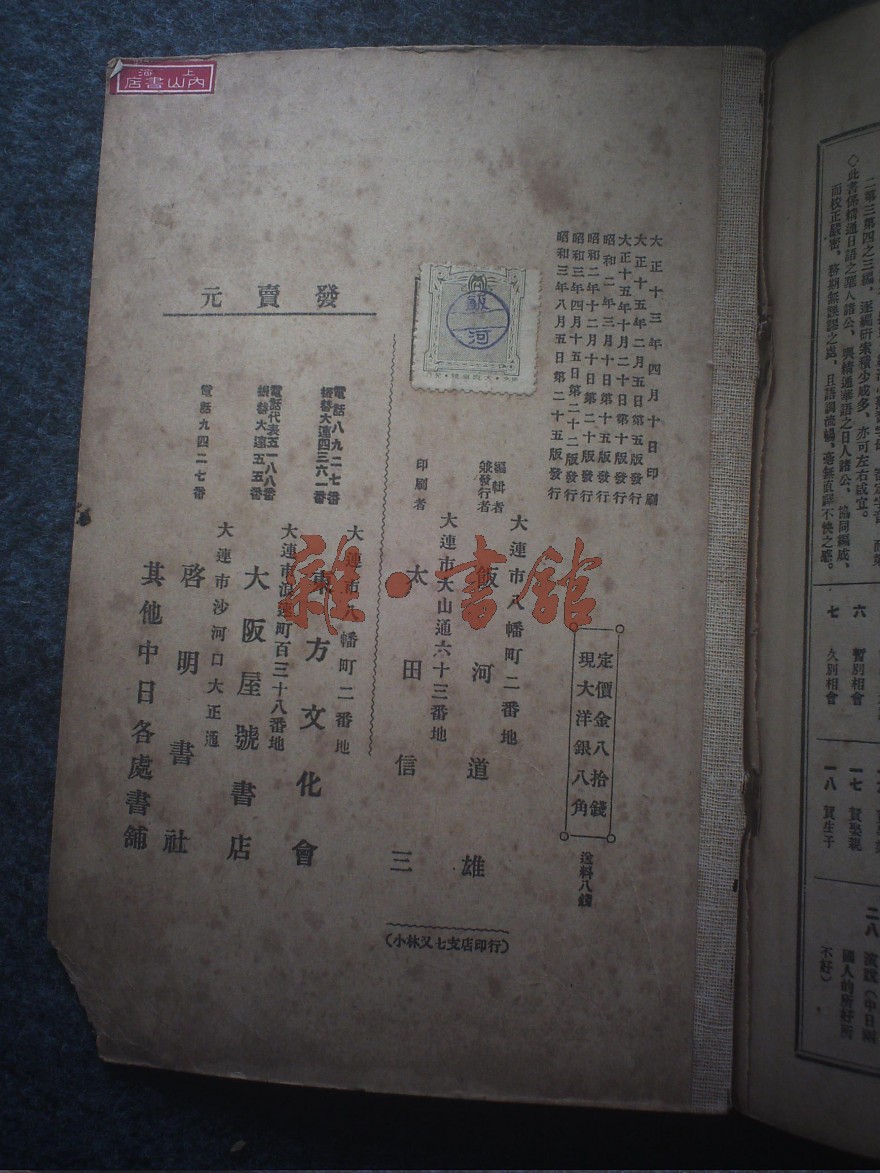 上海
內山書店
大正十三年四月十日印刷
大正十五年二月五日第五版發行
大正十五年十月二十日第十版發行
昭和二年三月十日第十五版發行
昭和二年十二月十日第二十版發行
昭和三年四月十五日第二十二版發行
昭和三年八月五日第二十五版發行
定價金八拾錢
現大洋銀八角
送料八錢
大連市八幡町二番地
編輯者
兼發行者
飯河道雄
大連市大山通六十三番地
印刷者
太田信三
(小林又七支店印行)
飯河
發賣元
大連市八幡町二番地
東方文化會
電話八九二七番
振替大連四三六一番
大連市浪速町百三十八番地
大阪屋號書店
電話代表五一八八番
振替大連五五番
大連市沙河口大正通
啓明書社
電話九四二七番
其他中日各處書舖
雜·書館
二第三第四之三編,逐編研索積少成多,亦可左右咸宜。
◇此書係精通日語之華人諸公,與精通華語之日人諸公,協同編成,
而校正嚴密,務期無誤謬之處,且語調流暢,毫無直譯不快之感。
六 暫別相會
七 久別相會
一七 賀娶親
一八 賀生子
二八 演說(中日兩
國人的所好所
不好)